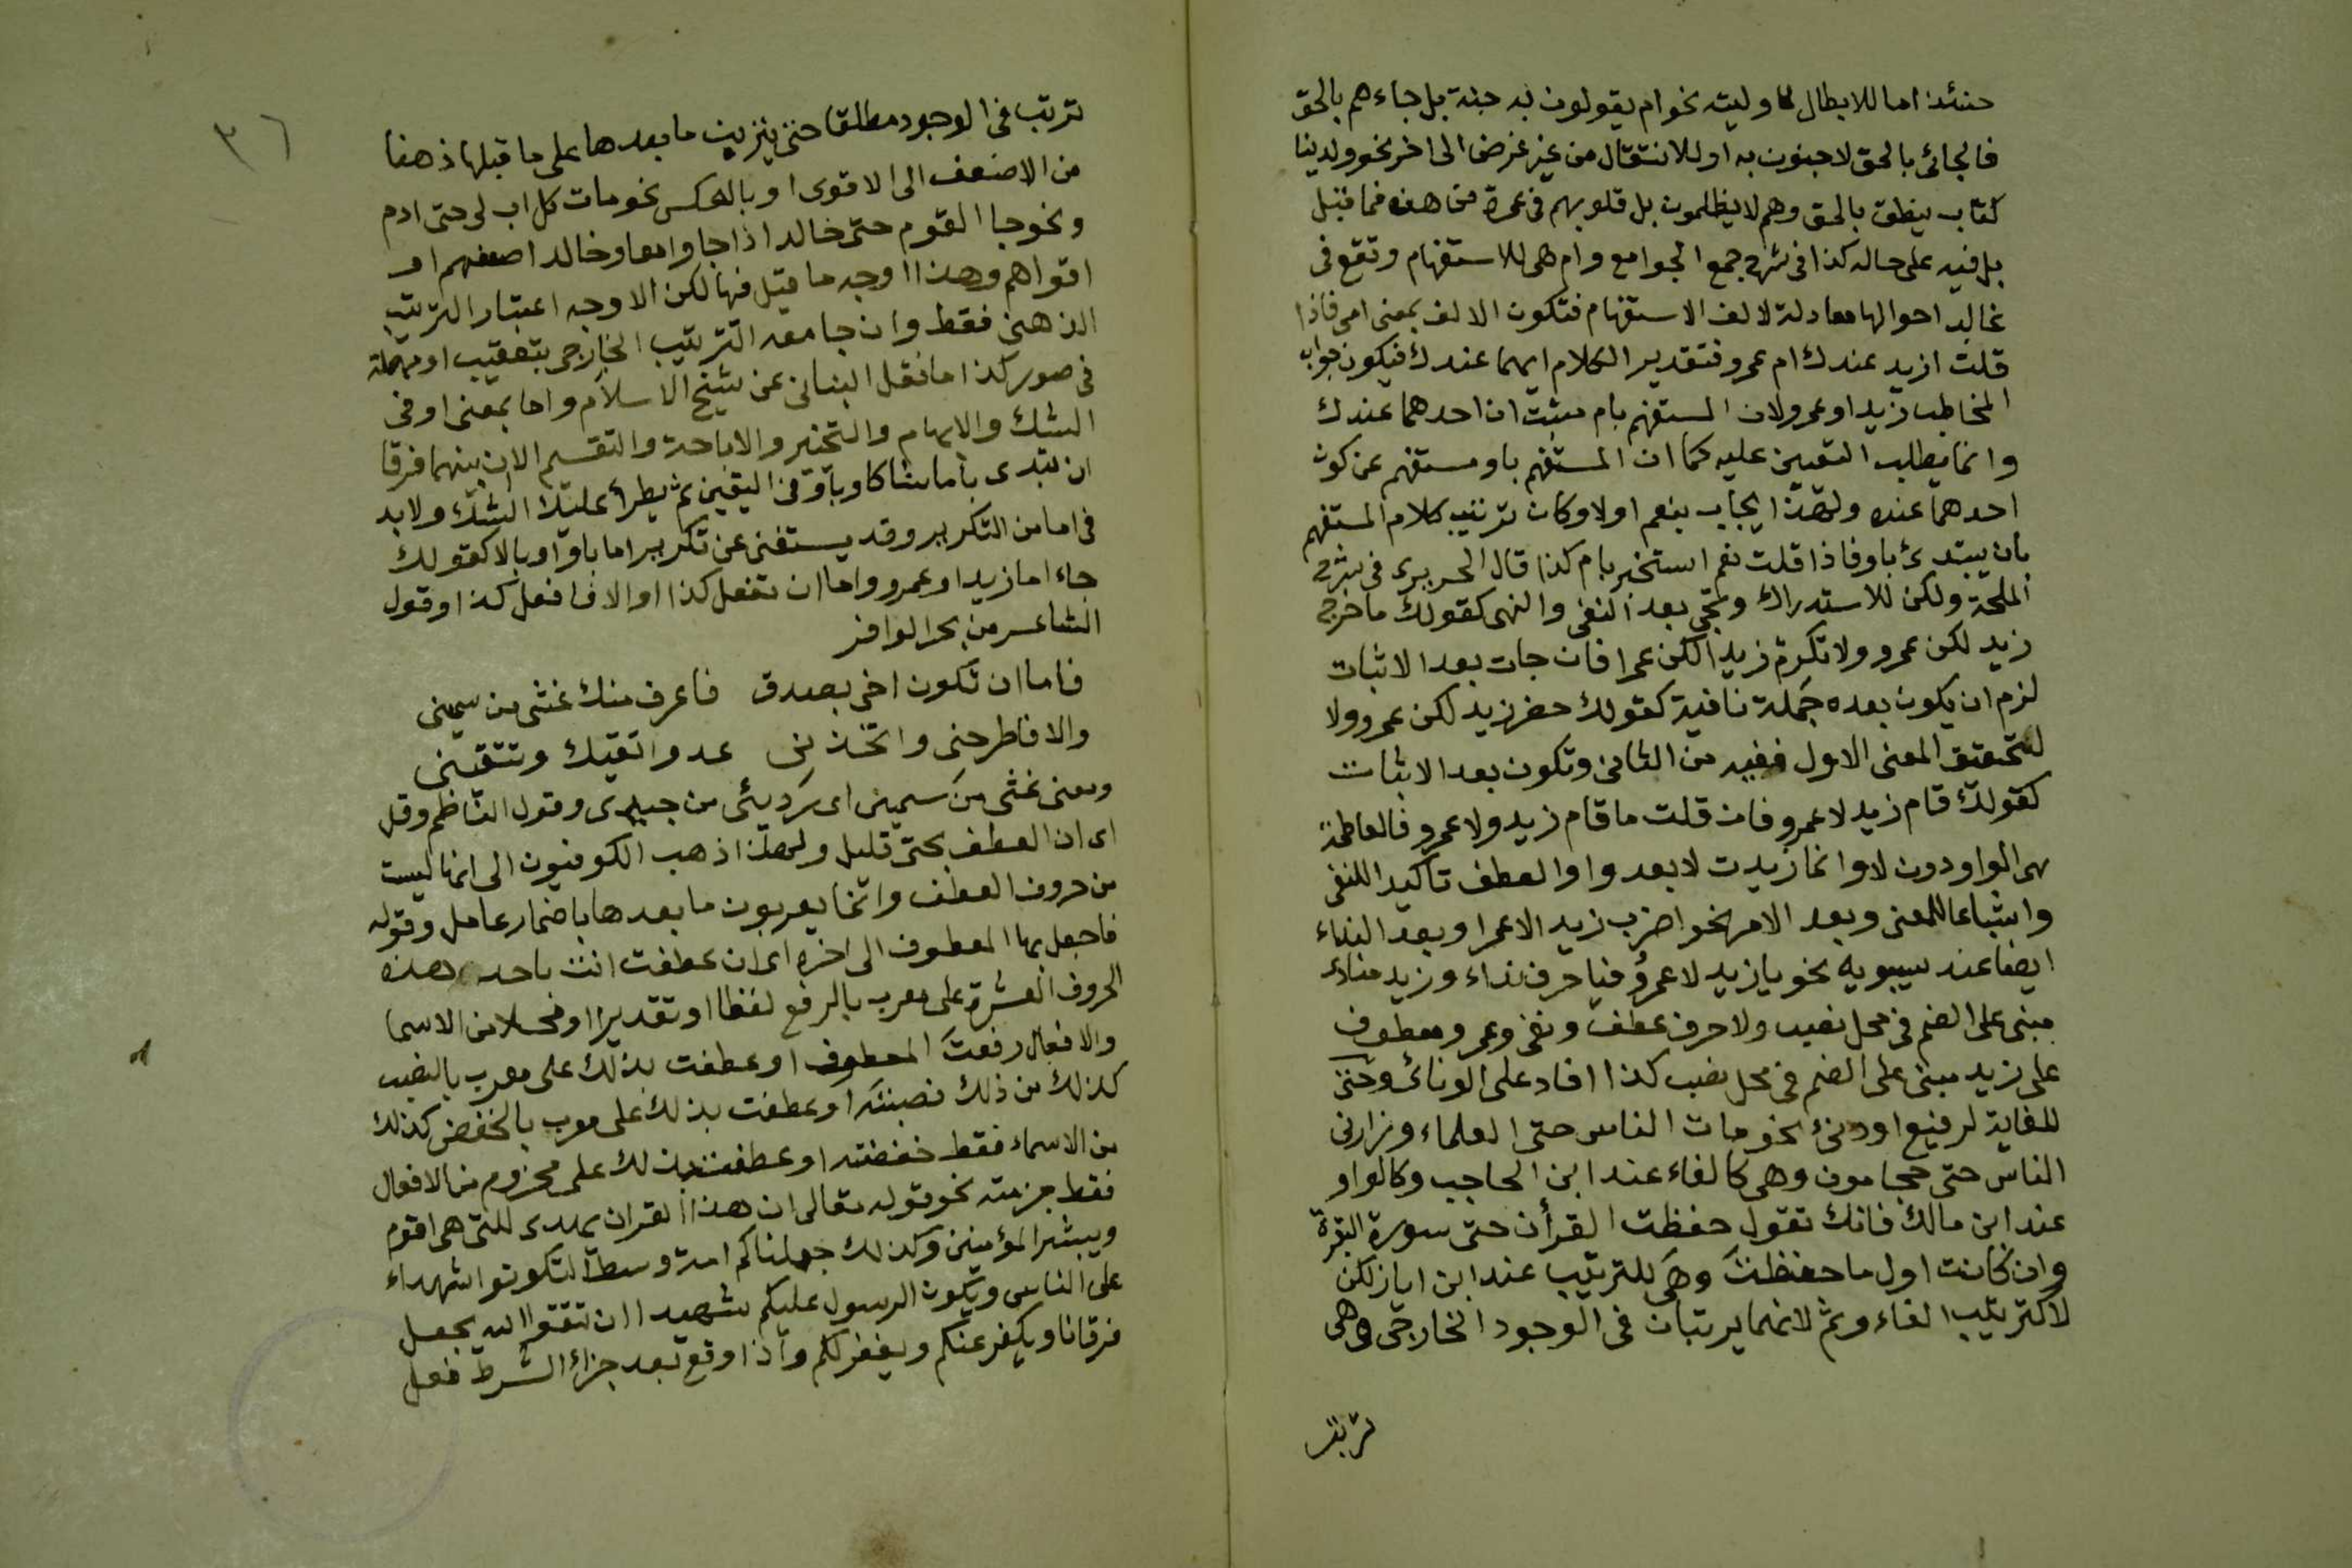 حنئذ اما للابطال لما وليته نحو ام يقولون به جنة بل جاءهم بالحق
فالجائ بالحق لا جنون به او للانتقال من غير غرض الى اخر نحو ولدينا
كتاب ينطق بالحق وهم لا يظلمون بل قلوبهم في غمرة من هذه فما قبل
بل فيه على حاله كذا في شرح جمع الجوامع وام هي للاستفهام وتقع في
غالب احوالها معادلة لالف الاستفهام فتكون الالف بمعنى اي فاذا
قلت ازيد عندك ام عمرو فتقدير الكلام ايهما عندك فيكون جواب
المخاطب زيد او عمرو لان المستفهم بام مثبت ان احدهما عندك
وانما يطلب التعيين عليه كما ان المستفهم باو مستفهم عن كون
احدهما عنده ولهذا يجاب بنعم اولا وكان ترتيب كلام المستفهم
بان يبتدئ باو فاذا قلت نعم استخبر بام كذا قال الحريري في شرح
الملحة ولكن للاستدراك وتجي بعد النفي والنهي كقولك ما خرج
زيد لكن عمرو ولا تكرم زيدا لكن عمرا فان جات بعد الاثبات
لزم ان يكون بعده جملة نافية كقولك حضر زيد لكن عمرو ولا
لتحقيق المعنى الاول ففيه من الثاني وتكون بعد الاثبات
كقولك قام زيد لا عمرو فان قلت ما قام زيد ولا عمرو فالعاطفة
هي الواو دون لا وانما زيدت لا بعد واو العطف تاكيدا للنفي
واشباعا للمعنى وبعد الامر نحو اضرب زيد الا عمرا وبعد النداء
ايضا عند سيبويه نحو يا زيد لا عمرو فيا حرف نداء وزيد منادى
مبني على الضم في محل نصب ولا حرف عطف ونفي وعمرو معطوف
على زيد مبني على الضم في محل نصب كذا افاد على الونائي وحتى
للغاية لرفيع او دنئ نحو مات الناس حتى العلماء وزارني
الناس حتى حجامون وهي كالفاء عند ابن الحاجب وكالواو
عند ابن مالك فانك تقول حفظت القرأن حتى سورة البقرة
وان كانت اول ما حفظت وهي للترتيب عند ابن اياز لكن
لا كترتيب الفاء وثم لانهما يرتبان في الوجود الخارجي وهي
ترتب
٣٦
ترتب في الوجود مطلقا حتى يترتب ما بعدها على ما قبلها ذهنا
من الاضعف الى الاقوى او بالعكس نحو مات كل اب لي حتى ادم
ونحو جا القوم حتى خالد اذا جاوا معا وخالد اضعفهم او
اقواهم وهذا اوجه ما قيل فيها لكن الاوجه اعتبار الترتيب
الذهني فقط وان جامعه الترتيب الخارجي بتعقيب او مهملة
في صور كذا ما نقل البناني عن شيخ الاسلام واما بمعنى او في
الشك والابهام والتخيير والاباحة والتقسيم الا ان بينهما فرقا
ان تبتدى باما شاكا وباو في اليقين ثم يطرأ عليك الشك ولا بد
في اما من التكرير وقد يستغنى عن تكرير اما باو او بالا كقولك
جاء اما زيد او عمرو واما ان تفعل كذا او الا فافعل كذا وقول
الشاعر من بحر الوافر
فاما ان تكون اخي بصدق فاعرف منك غثى من سميني
والا فاطرحني واتخذني عدوا تقيك وتتقيني
ومعنى غثى من سميني اى ردئى من جيدى وقول الناظم وقل
اى ان العطف بحتى قليل ولهذا ذهب الكوفيون الى انها ليست
من حروف العطف وانما يعربون ما بعدها باضمار عامل وقوله
فاجعل بها المعطوف الى اخره اى ان عطفت انت باحد هذه
الحروف العشرة على معرب بالرفع لفظا او تقديرا او محلا من الاسما
والافعال رفعت المعطوف او عطفت بذلك على معرب بالنصب
كذلك من ذلك نصبته او عطفت بذلك على معرب بالخفض كذلك
من الاسماء فقط خفضته او عطفت بذلك على مجزوم من الافعال
فقط جزمته نحو قوله تعالى ان هذا القران يهدى للتي هي اقوم
ويبشر المؤمنين وكذلك جعلناكم امة وسطا لتكونوا شهداء
على الناس ويكون الرسول عليكم شهيدا ان تتقوا الله يجعل
فرقانا ويكفر عنكم ويغفر لكم واذا وقع بعد جزاء الشرط فعل